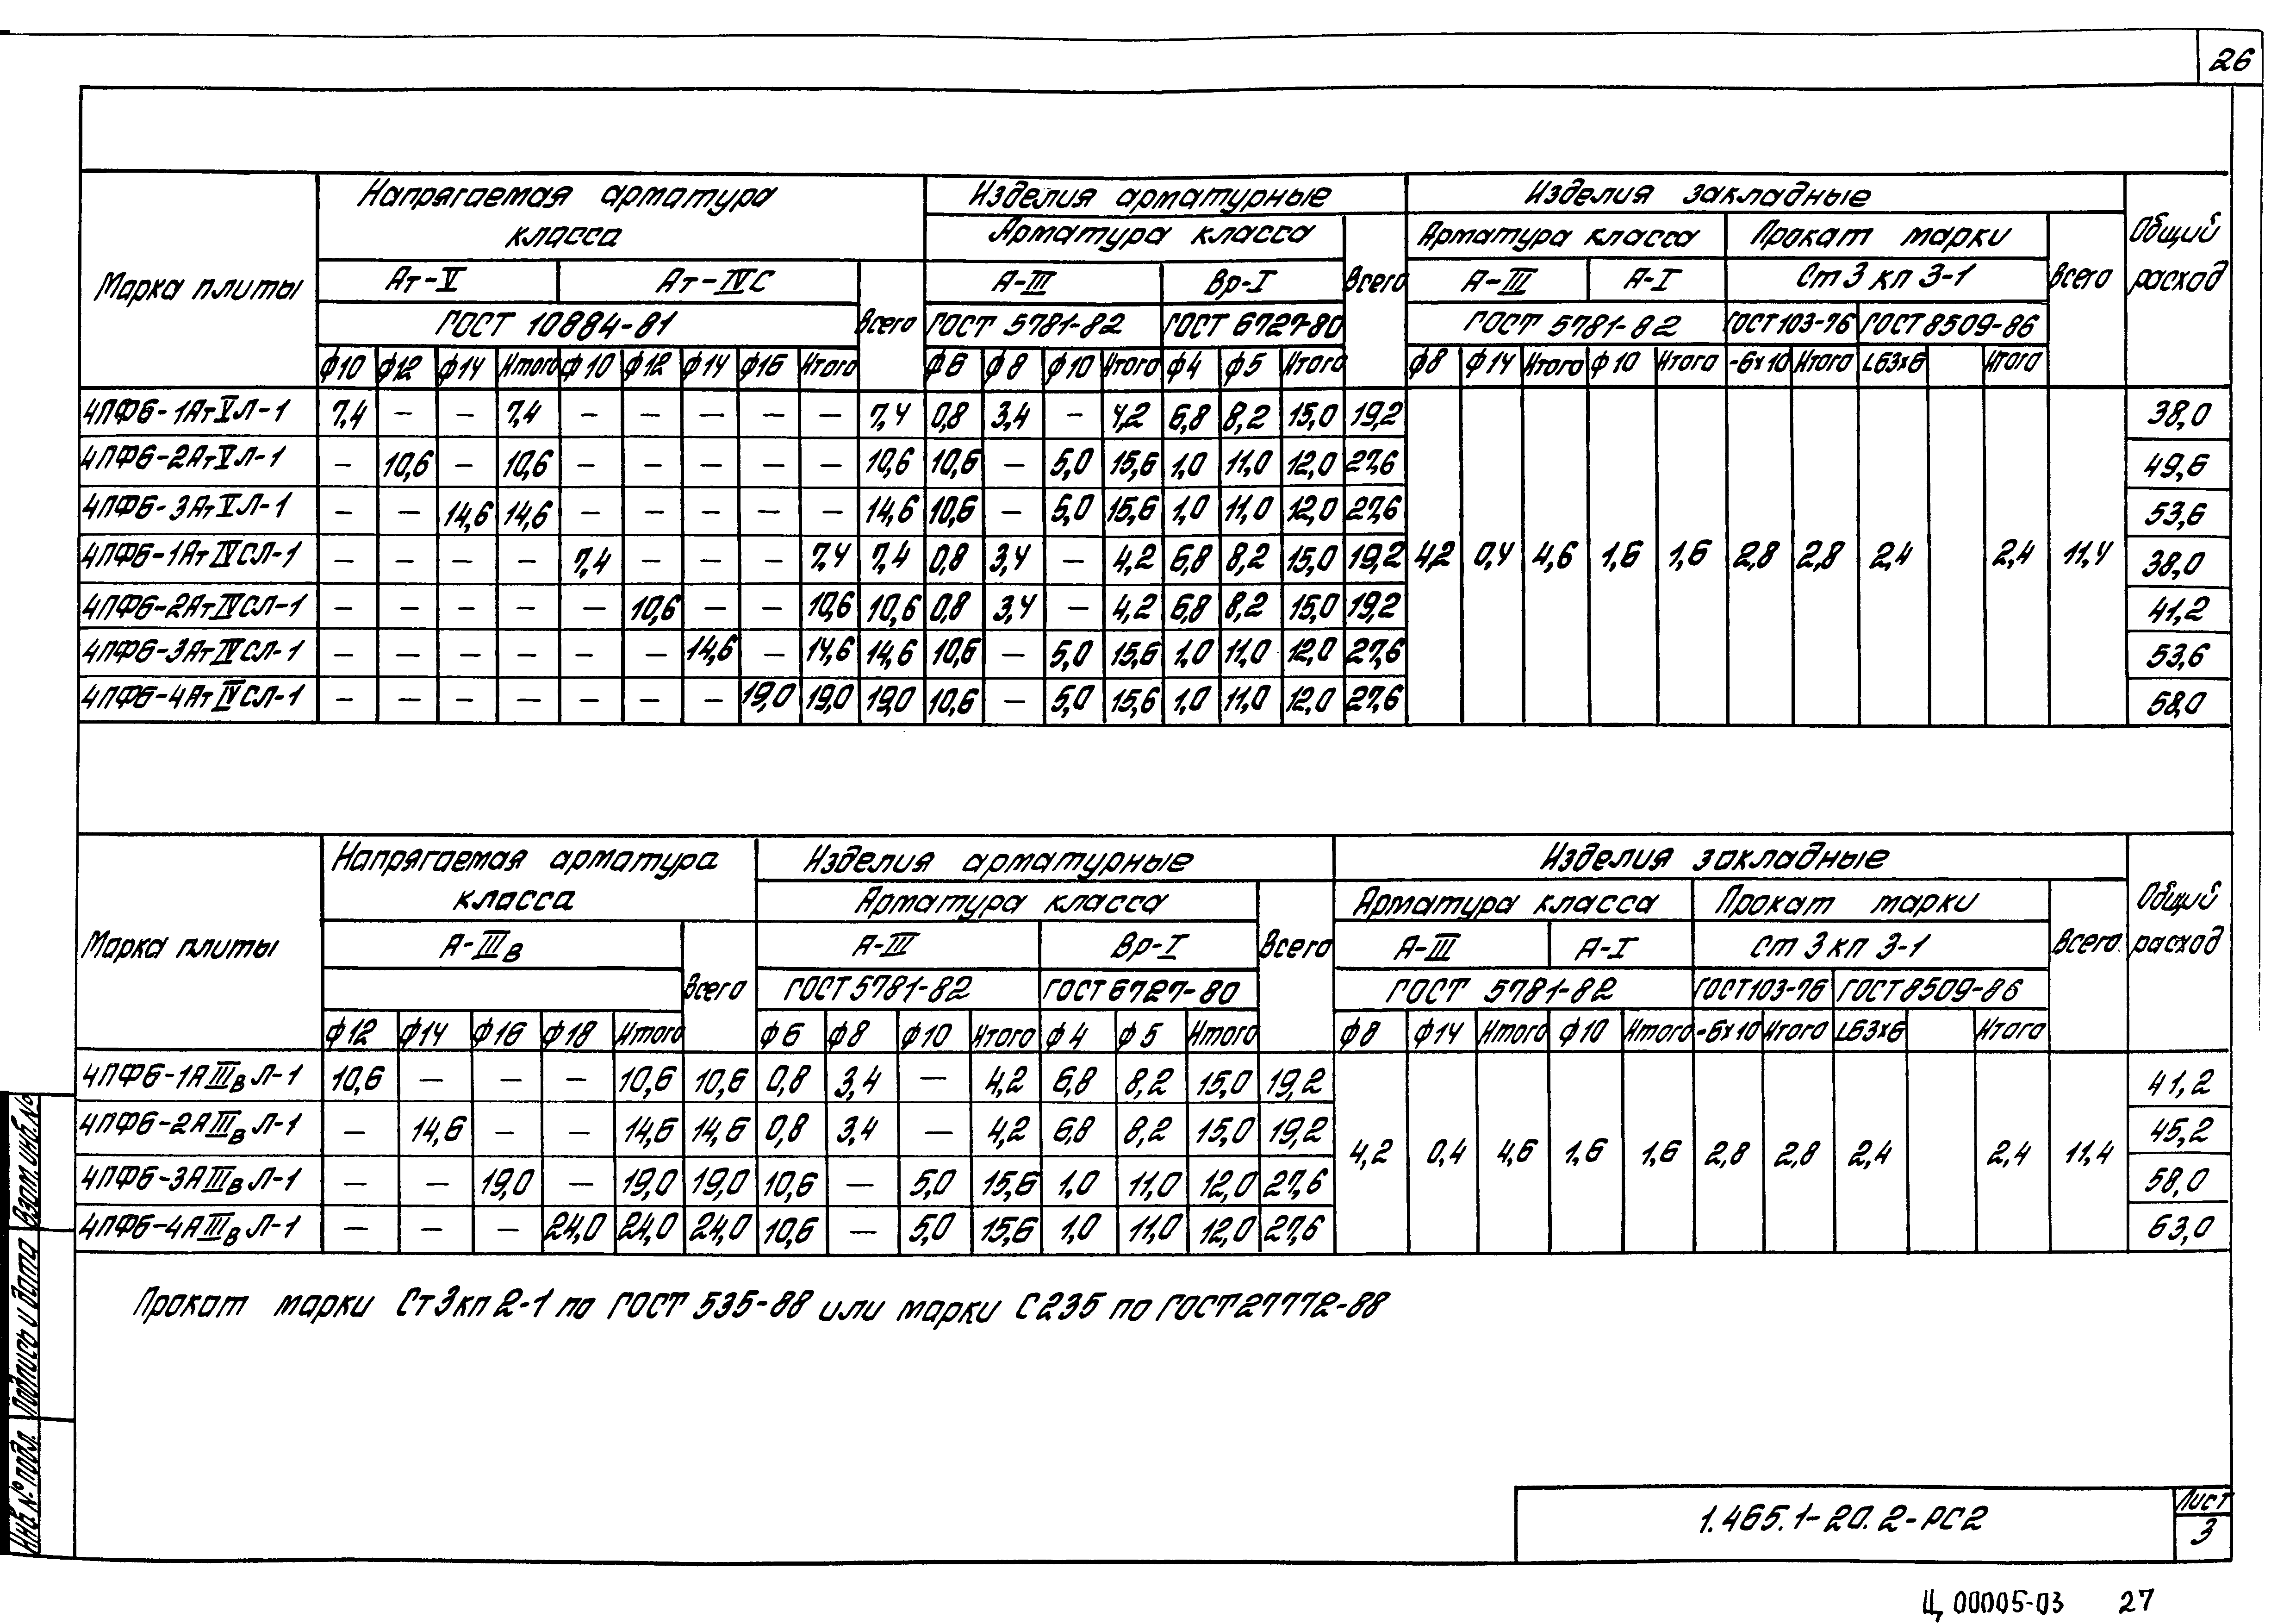 26
Марка плиты Напрягаемая арматура класса Изделия арматурные Изделия закладные Общий расход
Арматура класса Всего Арматура класса Прокат марки Всего
Ат-V Ат-IVС Всего А-III Вр-I А-III А-I Ст 3 кп 3-1
ГОСТ 10884-81 ГОСТ 5781-82 ГОСТ 6727-80 ГОСТ 5781-82 ГОСТ 103-76 ГОСТ 8509-86
ф10 ф12 ф14 Итого ф10 ф12 ф14 ф16 Итого ф6 ф8 ф10 Итого ф4 ф5 Итого ф8 ф14 Итого ф10 Итого -6х10 Итого L63х6 Итого
4ПФ6-1АтVЛ-1 7,4 — — 7,4 — — — — — 7,4 0,8 3,4 — 4,2 6,8 8,2 15,0 19,2 38,0
4ПФ6-2АтVЛ-1 — 10,6 — 10,6 — — — — — 10,6 10,6 — 5,0 15,6 1,0 11,0 12,0 27,6 49,6
4ПФ6-3АтVЛ-1 — — 14,6 14,6 — — — — — 14,6 10,6 — 5,0 15,6 1,0 11,0 12,0 27,6 53,6
4ПФ6-1АтIVСЛ-1 — — — — 7,4 — — — 7,4 7,4 0,8 3,4 — 4,2 6,8 8,2 15,0 19,2 4,2 0,4 4,6 1,6 1,6 2,8 2,8 2,4 2,4 11,4 38,0
4ПФ6-2АтIVСЛ-1 — — — — — 10,6 — — 10,6 10,6 0,8 3,4 — 4,2 6,8 8,2 15,0 19,2 41,2
4ПФ6-3АтIVСЛ-1 — — — — — — 14,6 — 14,6 14,6 10,6 — 5,0 15,6 1,0 11,0 12,0 27,6 53,6
4ПФ6-4АтIVСЛ-1 — — — — — — — 19,0 19,0 19,0 10,6 — 5,0 15,6 1,0 11,0 12,0 27,6 58,0
Марка плиты Напрягаемая арматура класса Изделия арматурные Изделия закладные Общий расход
Арматура класса Всего Арматура класса Прокат марки Всего
А-IIIв Всего А-III Вр-I А-III А-I Ст 3 кп 3-1
ГОСТ 5781-82 ГОСТ 6727-80 ГОСТ 5781-82 ГОСТ 103-76 ГОСТ 8509-86
ф12 ф14 ф16 ф18 Итого ф6 ф8 ф10 Итого ф4 ф5 Итого ф8 ф14 Итого ф10 Итого -6х10 Итого L63х6 Итого
4ПФ6-1АIIIвЛ-1 10,6 — — — 10,6 10,6 0,8 3,4 — 4,2 6,8 8,2 15,0 19,2 41,2
4ПФ6-2АIIIвЛ-1 — 14,6 — — 14,6 14,6 0,8 3,4 — 4,2 6,8 8,2 15,0 19,2 4,2 0,4 4,6 1,6 1,6 2,8 2,8 2,4 2,4 11,4 45,2
4ПФ6-3АIIIвЛ-1 — — 19,0 — 19,0 19,0 10,6 — 5,0 15,6 1,0 11,0 12,0 27,6 58,0
4ПФ6-4АIIIвЛ-1 — — — 24,0 24,0 24,0 10,6 — 5,0 15,6 1,0 11,0 12,0 27,6 63,0
Прокат марки Ст3кп2-1 по ГОСТ 535-88 или марки С235 по ГОСТ27772-88
Взам.инв.№
Подпись и дата
Инв.№ подл.
1.465.1-20.2-РС2
Лист
3
Ц 00005-03 27